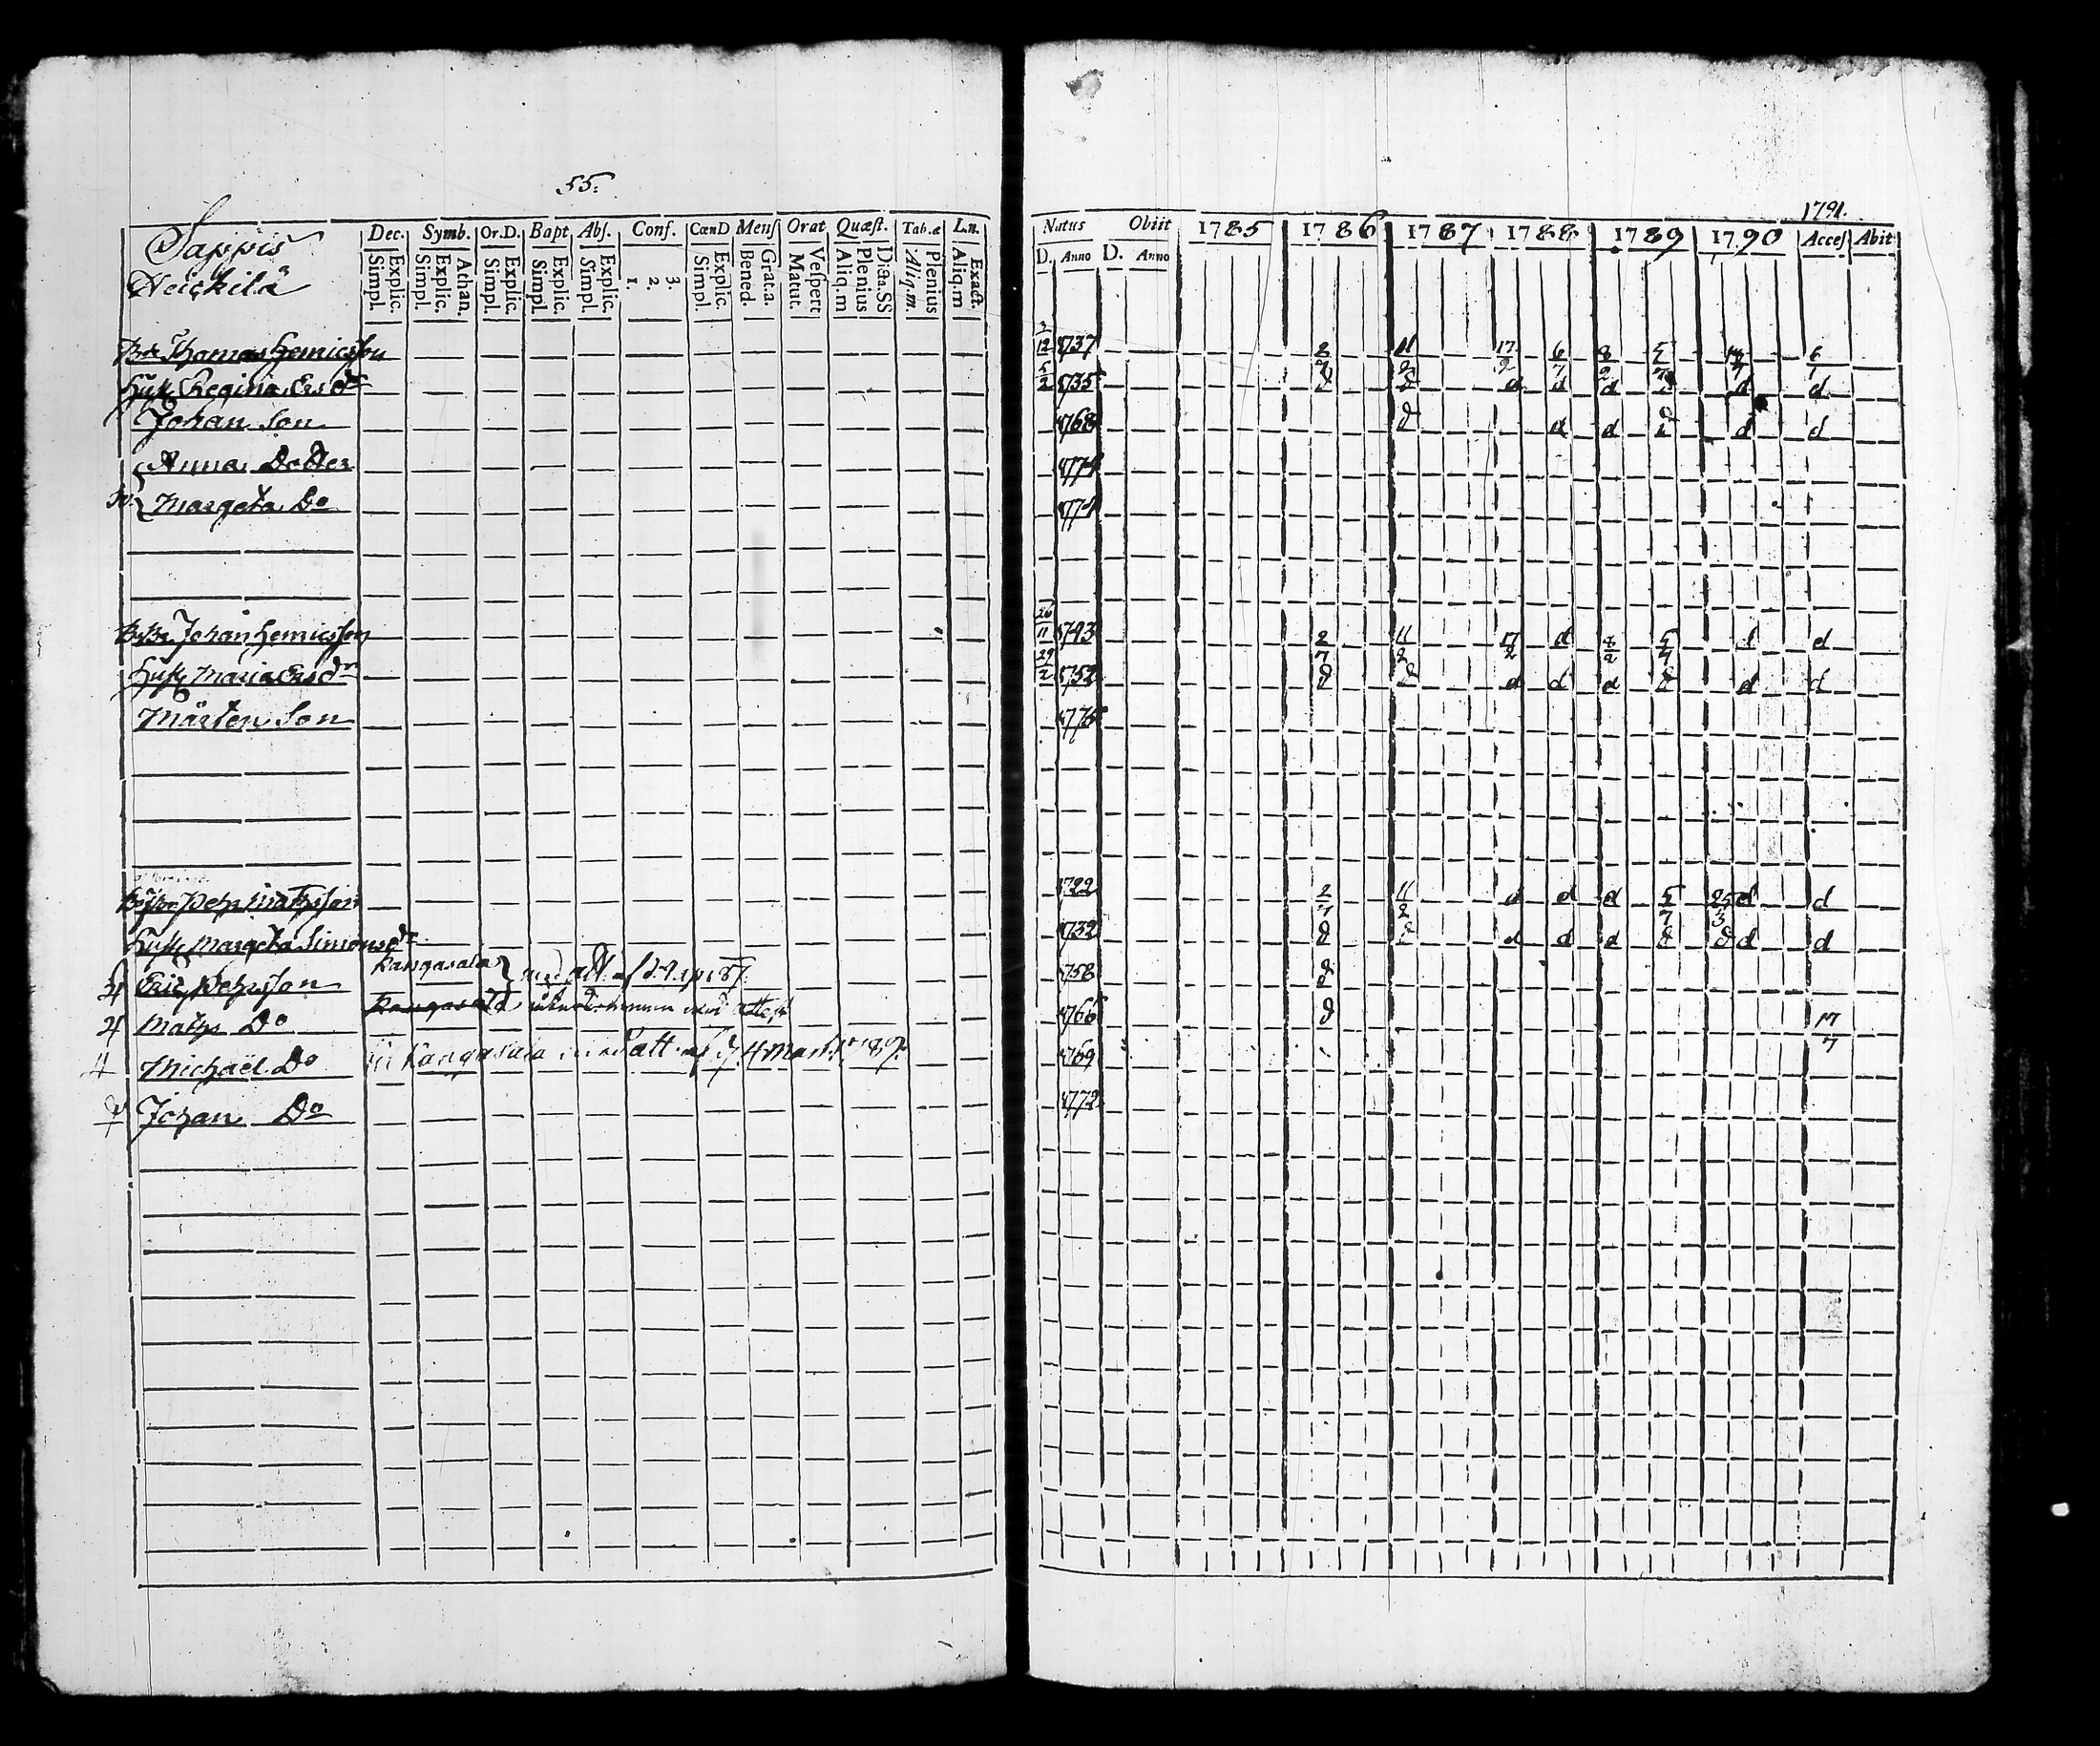 55:
Sappis
Heickilä
Dec. Symb. Or.D. Bapt Abſ. Conf. CœnD Menſ Orat Quæſt. Tab.æ Ln.
Simpl. Explic. Simpl. Explic. Athan. Simpl. Explic. Simpl. Explic. Simpl. Explic. 1. 2. 3. Simpl. Explic. Bened. Grat.a. Matut. Veſpert Aliq.m Plenius Dicta.SS Aliq.m. Plenius Aliq.m Exact.
Thomas Henricsson
Hust Regina Ersdr
Johan Son
Anna Dotter
Margeta Do
Johan Henricsson
Hust Maria Ersdr
Mårten Son
Pehr Matsson
Hust Margeta Simonsdr
Eric Pehrsson Kangasala med att. af
Mats Do Kangasala
Michaël Do Kangasala att. af Mart. 1789.
Johan Do
1791.
Natus Obiit 1785 1786 1787 1788 1789 1790 Acceſ Abit
D. Anno D. Anno
2/12 1737 2/7 11/2 17/2 6/7 8/2 5/7 6
5/2 1735 d d d d d d d
1768 d d d d d
1774
1774
26/11 1743 2/7 11/2 17/2 d 8/2 5/7 d d
29/2 1752 d d d d d d d d
1775
1722 2/7 11/2 d d d 5/7 25/3 d d
1732 d d d d d d d d d
1758 d
1766 d 17/7
1769
1772